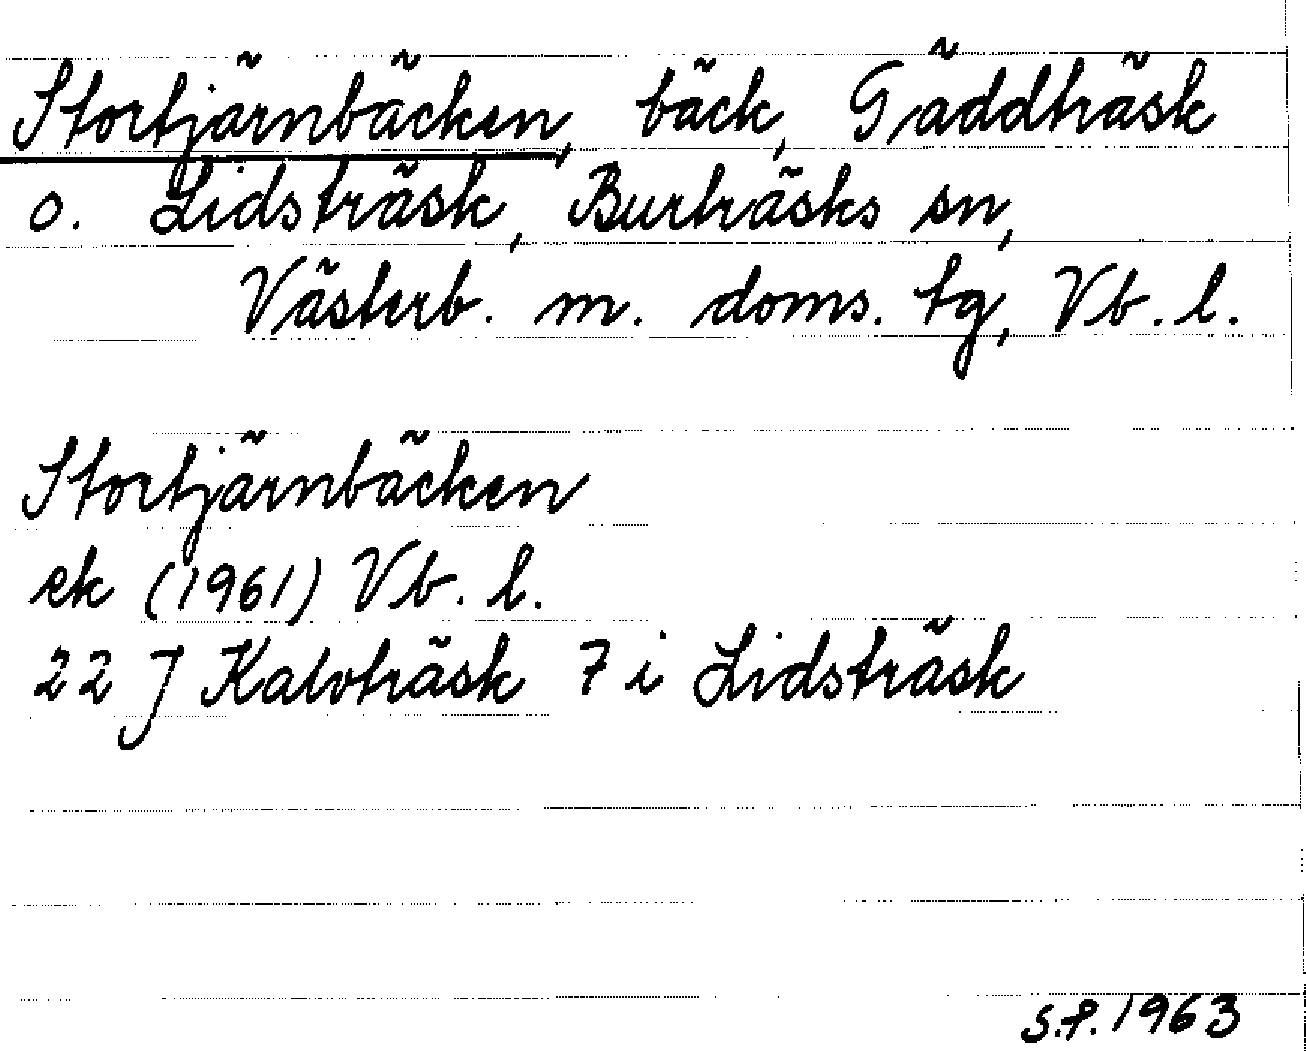 Stortjärnbäcken, bäck, Gäddträsk
o. Lidsträsk, Burträsks sn,
Västerb. m. doms. tg, Vb. l.
Stortjärnbäcken
ek (1961) Vb. l.
22 J Kalvträsk 7 i Lidsträsk
S.P. 1963